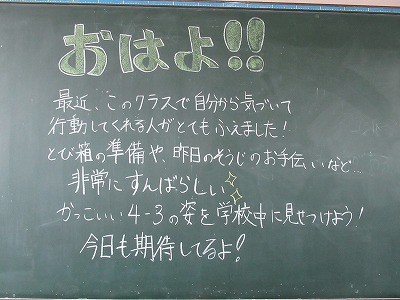 おはよ!!
最近、このクラスで自分から気づいて
行動してくれる人がとてもふえました!
とび箱の準備や、昨日のそうじのお手伝いなど…
非常にすんばらしい
かっこいい4-3の姿を学校中に見せつけよう!
今日も期待してるよ!